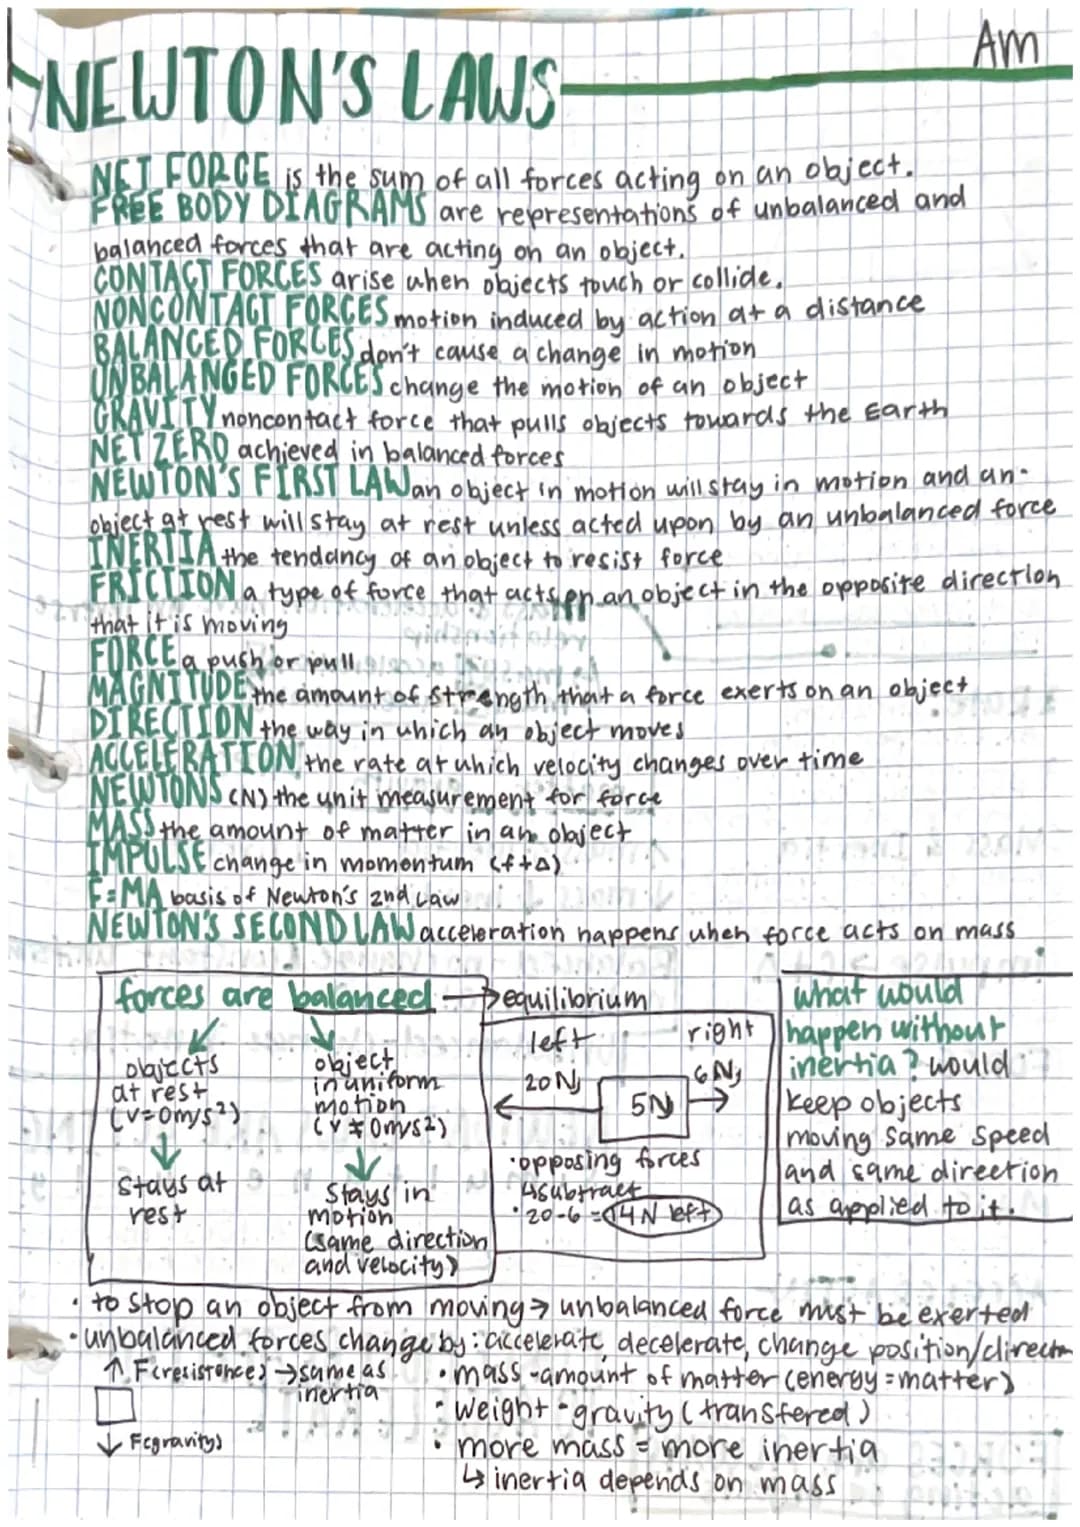 Am
NEWTON'S LAWS
NET FORCE is the sum of all forces acting on an object.
FREE BODY DIAGRAMS are representations of unbalanced and
balanced forces that are acting on an object.
CONTACT FORCES arise when objects touch or collide.
NONCONTACT FORCES motion induced by action at a distance
BALANCED FORCES don't cause a change in motion
UNBALANCED FORCES change the motion of an object
GRAVITY noncontact force that pulls objects towards the Earth
NET ZERO achieved in balanced forces
NEWTON'S FIRST LAW an object in motion will stay in motion and an
object at rest will stay at rest unless acted upon by an unbalanced force
INERTIA the tendancy of an object to resist force
FRICTION a type of force that acts on an object in the opposite direction
that it is moving
FORCE a push or pull
MAGNITUDE the amount of strength that a force exerts on an object
DIRECTION the way in which an object moves
ACCELERATION the rate at which velocity changes over time
NEWTONS (N) the unit measurement for force
MASS the amount of matter in an object
IMPULSE change in momentum (f+Δ)
F=MA basis of Newton's 2nd Law
NEWTON'S SECOND LAW acceleration happens when force acts on mass
forces are balanced → equilibrium
objects
at rest
(v=0m/s²)
↓
stays at
rest
object
in uniform
motion
(v≠0m/s²)
↓
stays in
motion
(same direction
and velocity)
left right
20N 5N 6N
·opposing forces
↳subtract
·20-6=14N left
what would
happen without
inertia? would
keep objects
moving same speed
and same direction
as applied to it.
· to stop an object from moving → unbalanced force must be exerted
· unbalanced forces change by: accelerate, decelerate, change position/direction
↑ F(resistance) → same as
inertia
↓ F(gravity)
· mass - amount of matter (energy = matter)
· weight - gravity (transfered)
· more mass = more inertia
↳ inertia depends on mass